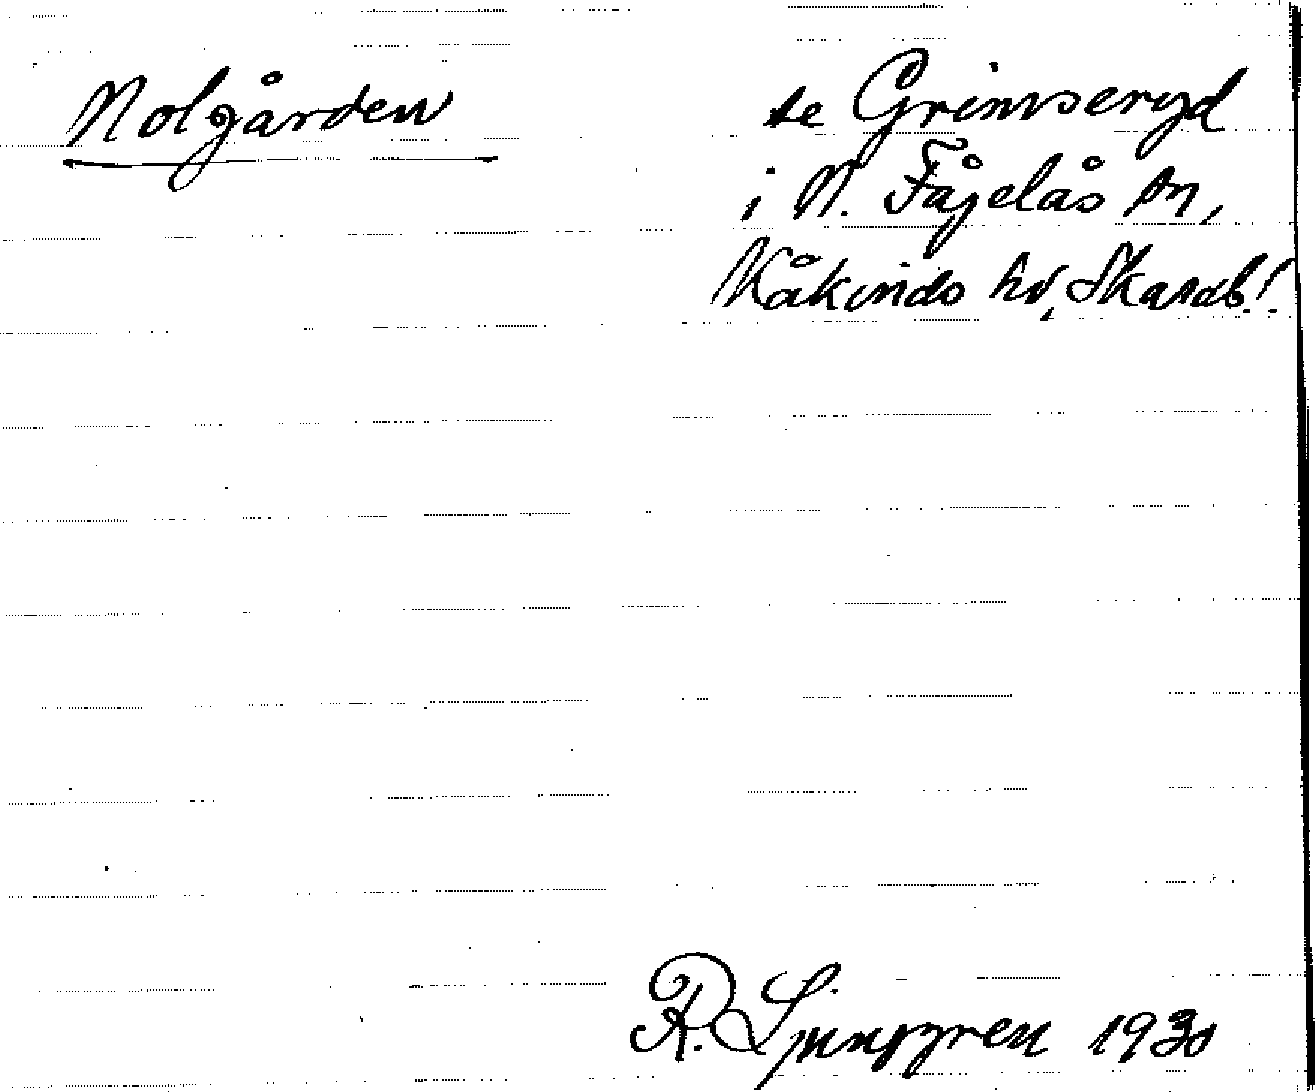 Nolgården
se Grimseryd
i N. Fågelås sn,
Kåkinds hd, Skarab.!
R. Ljunggren 1930